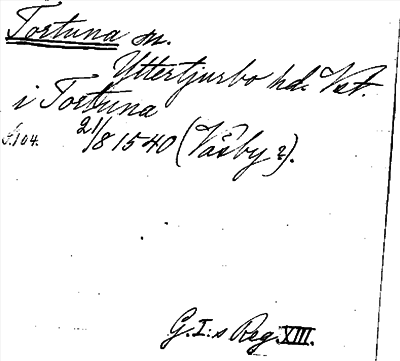 Tortuna sn.
Yttertjurbo hd. Vst.
i Tortuna
s. 104. 21/8 1540 (Väsby?).
G. I:s Reg. XIII.